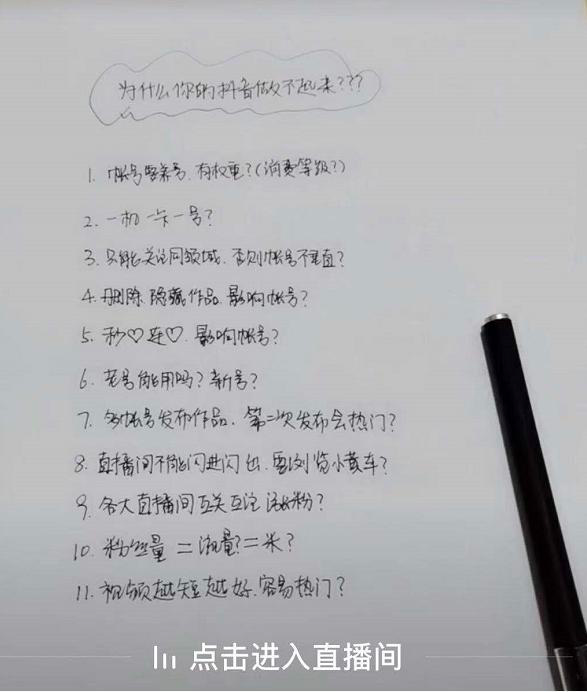 为什么你的抖音做不起来???
1. 帐号要养号. 有权重?(消费等级?)
2. 一机一卡一号?
3. 只能关注同领域. 否则帐号不垂直?
4. 删除.隐藏作品.影响帐号?
5. 秒♡连♡.影响帐号?
6. 老号能用吗?新号?
7. 多帐号发布作品. 第二次发布会热门?
8. 直播间不能闪进闪出.要浏览小黄车?
9. 各大直播间互关互注 涨粉?
10. 粉丝量=流量?=米?
11. 视频越短越好.容易热门?
点击进入直播间